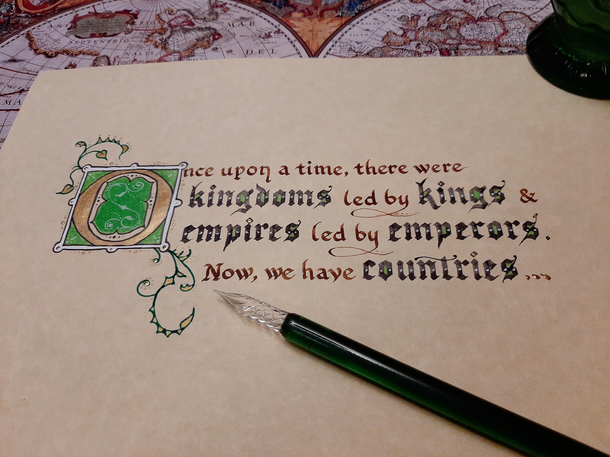 Once upon a time, there were
kingdoms led by kings &
empires led by emperors.
Now, we have countries...